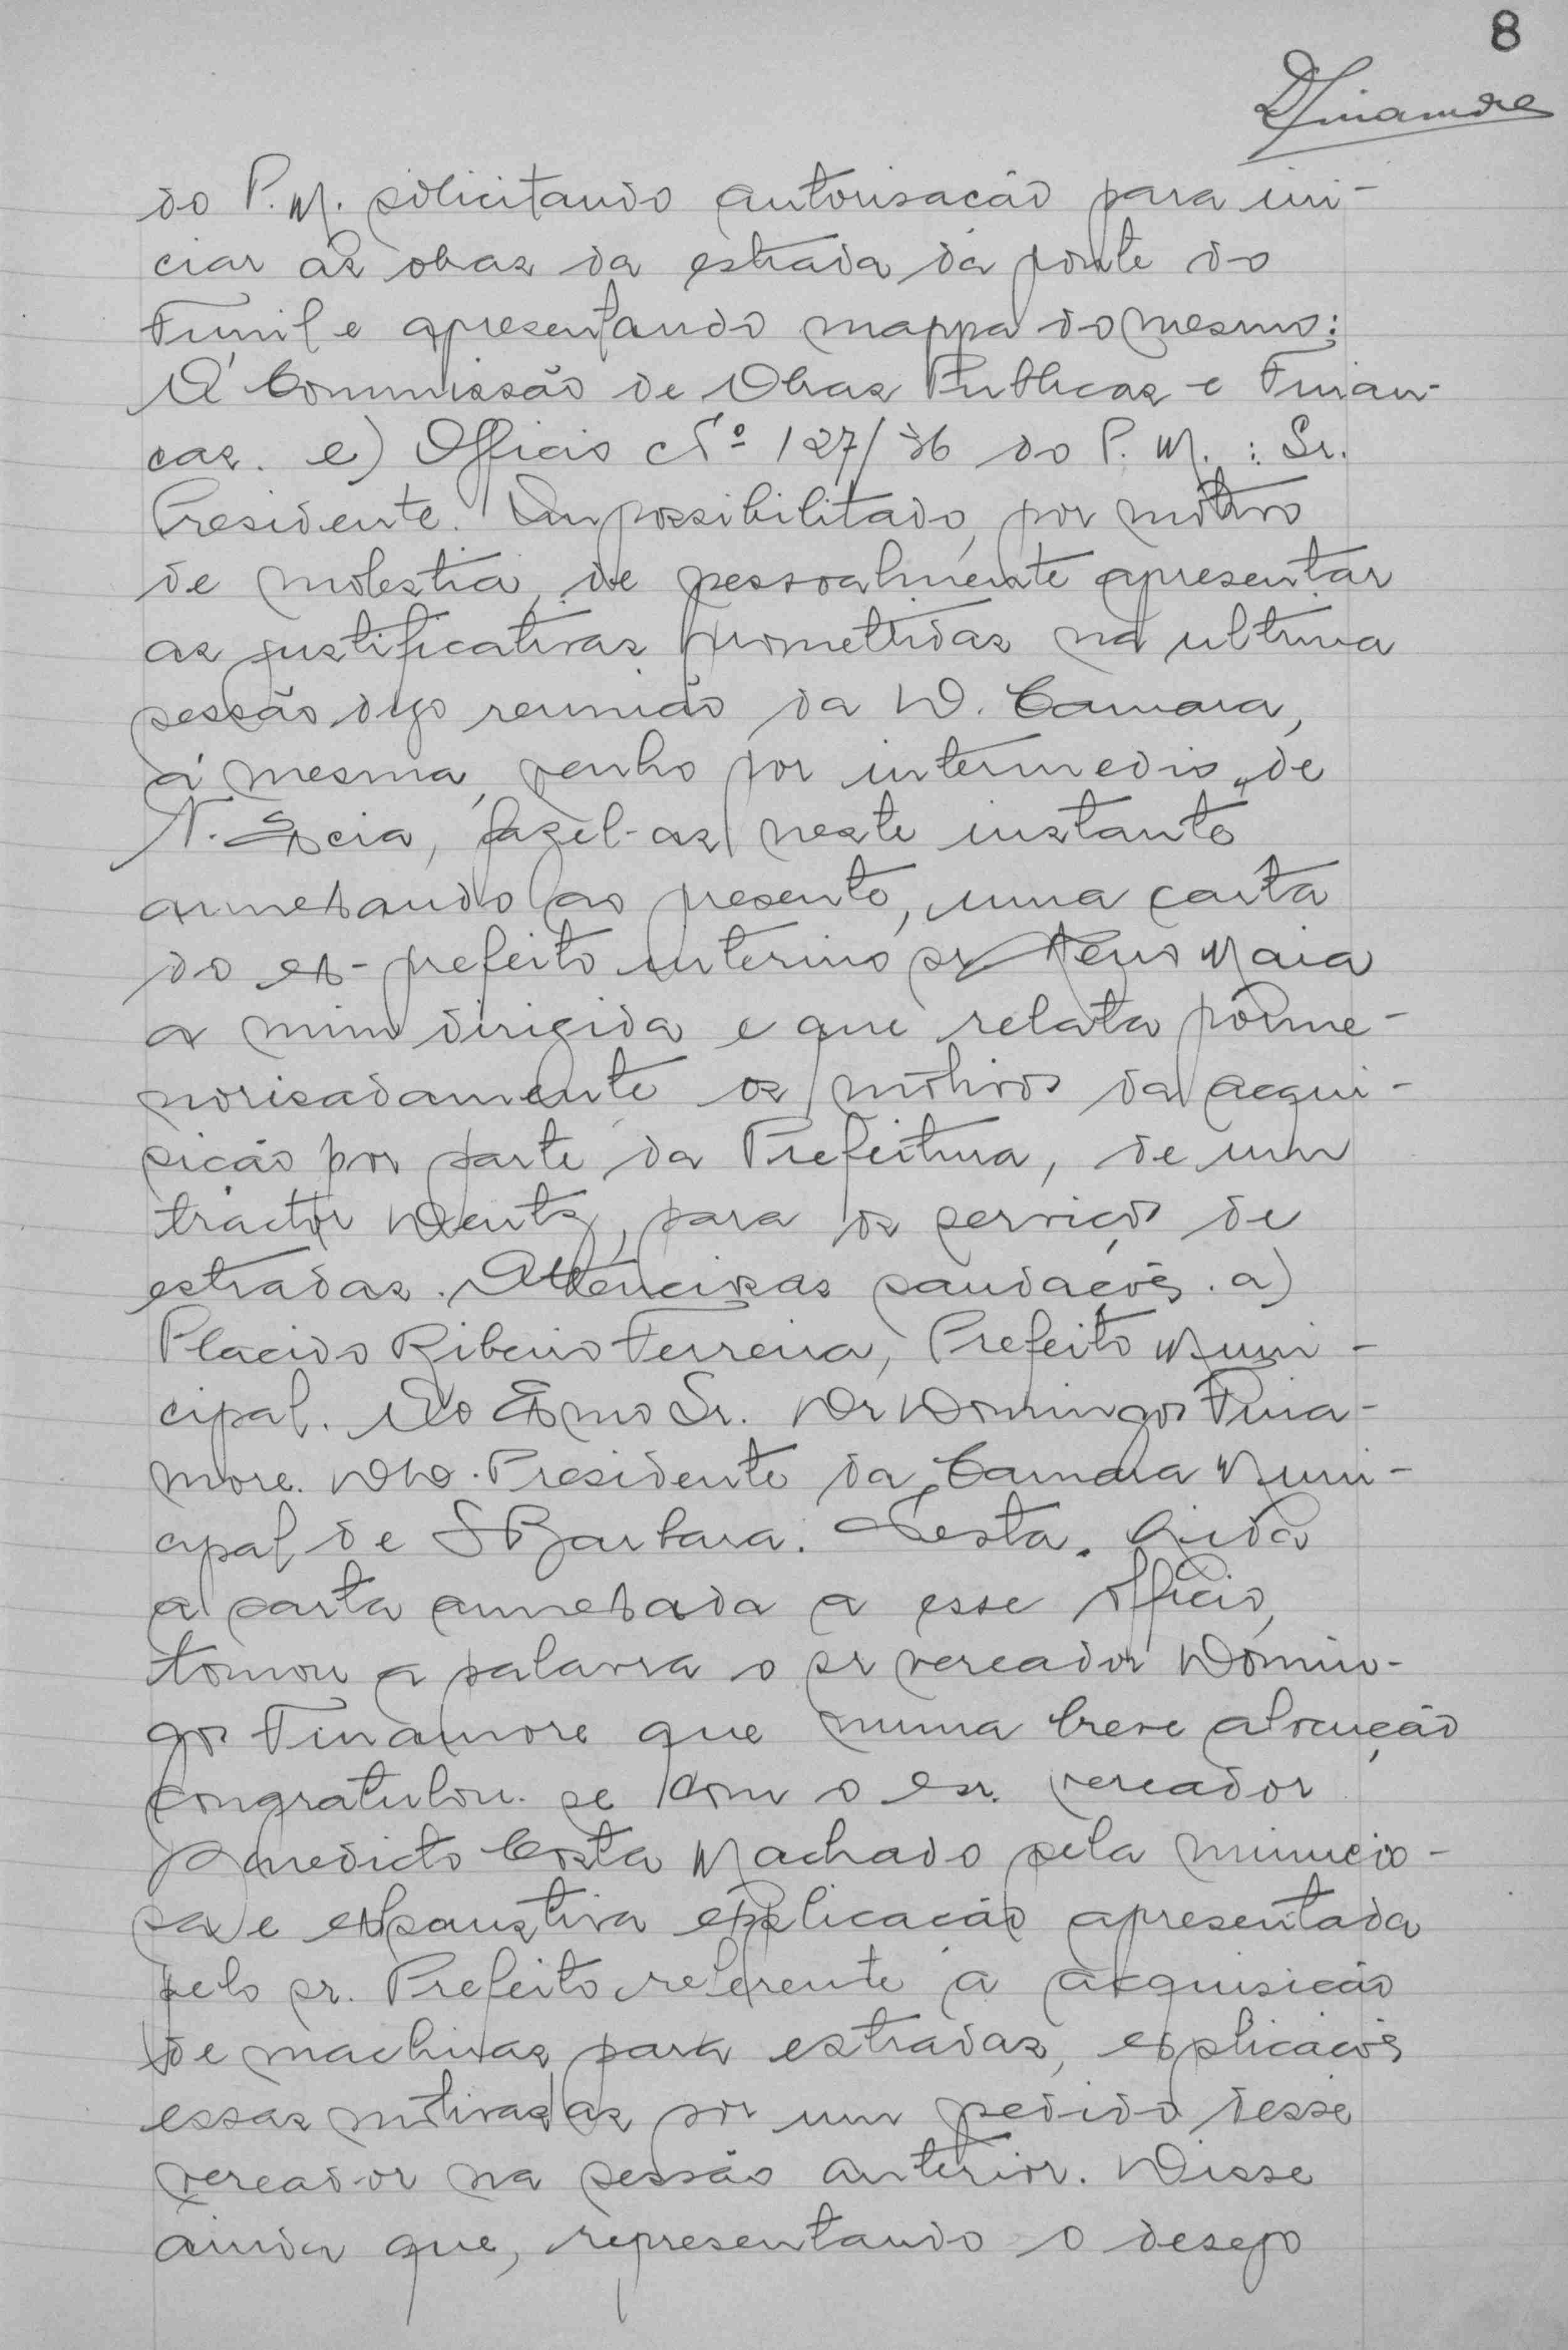 8
DFinamore
do P. M. solicitando autorisação para ini-
ciar as obras da estrada da ponte do
Funil e apresentando mappa do mesmo:
A' Commissão de Obras Publicas e Finan-
ças. e) Officio Nº 127/36 do P. M. : Sr.
Presidente. Impossibilitado, por motivo
de molestia, de pessoalmente apresentar
as justificativas promettidas na ultima
sessão digo reunião da D. Camara,
á mesma, venho por intermedio de
V. Excia, fazel-as neste instante
annexando ao presente, uma carta
do ex-prefeito interino sr Maia
a mim dirigida e que relata porme-
norisadamente os motivos da acqui-
sição por parte da Prefeitura, de um
tractor Deutz, para os serviços de
estradas. Attenciosas saudações. a)
Placido Ribeiro Ferreira, Prefeito Muni-
cipal. Ao Exmo Sr. Dr Domingos Fina-
more. DD. Presidente da Camara Muni-
cipal de S Barbara. Nesta. Lida
a carta annexada a esse officio,
tomou a palavra o sr vereador Domin-
gos Finamore que numa breve alocução
congratulou-se com o exr. vereador
Benedicto Costa Machado pela minucio-
sa e exhaustiva explicação apresentada
pelo sr. Prefeito referente a acquisição
de machinas para estradas, explicações
essas motivadas por um pedido desse
vereador na sessão anterior. Disse
ainda que, representando o desejo